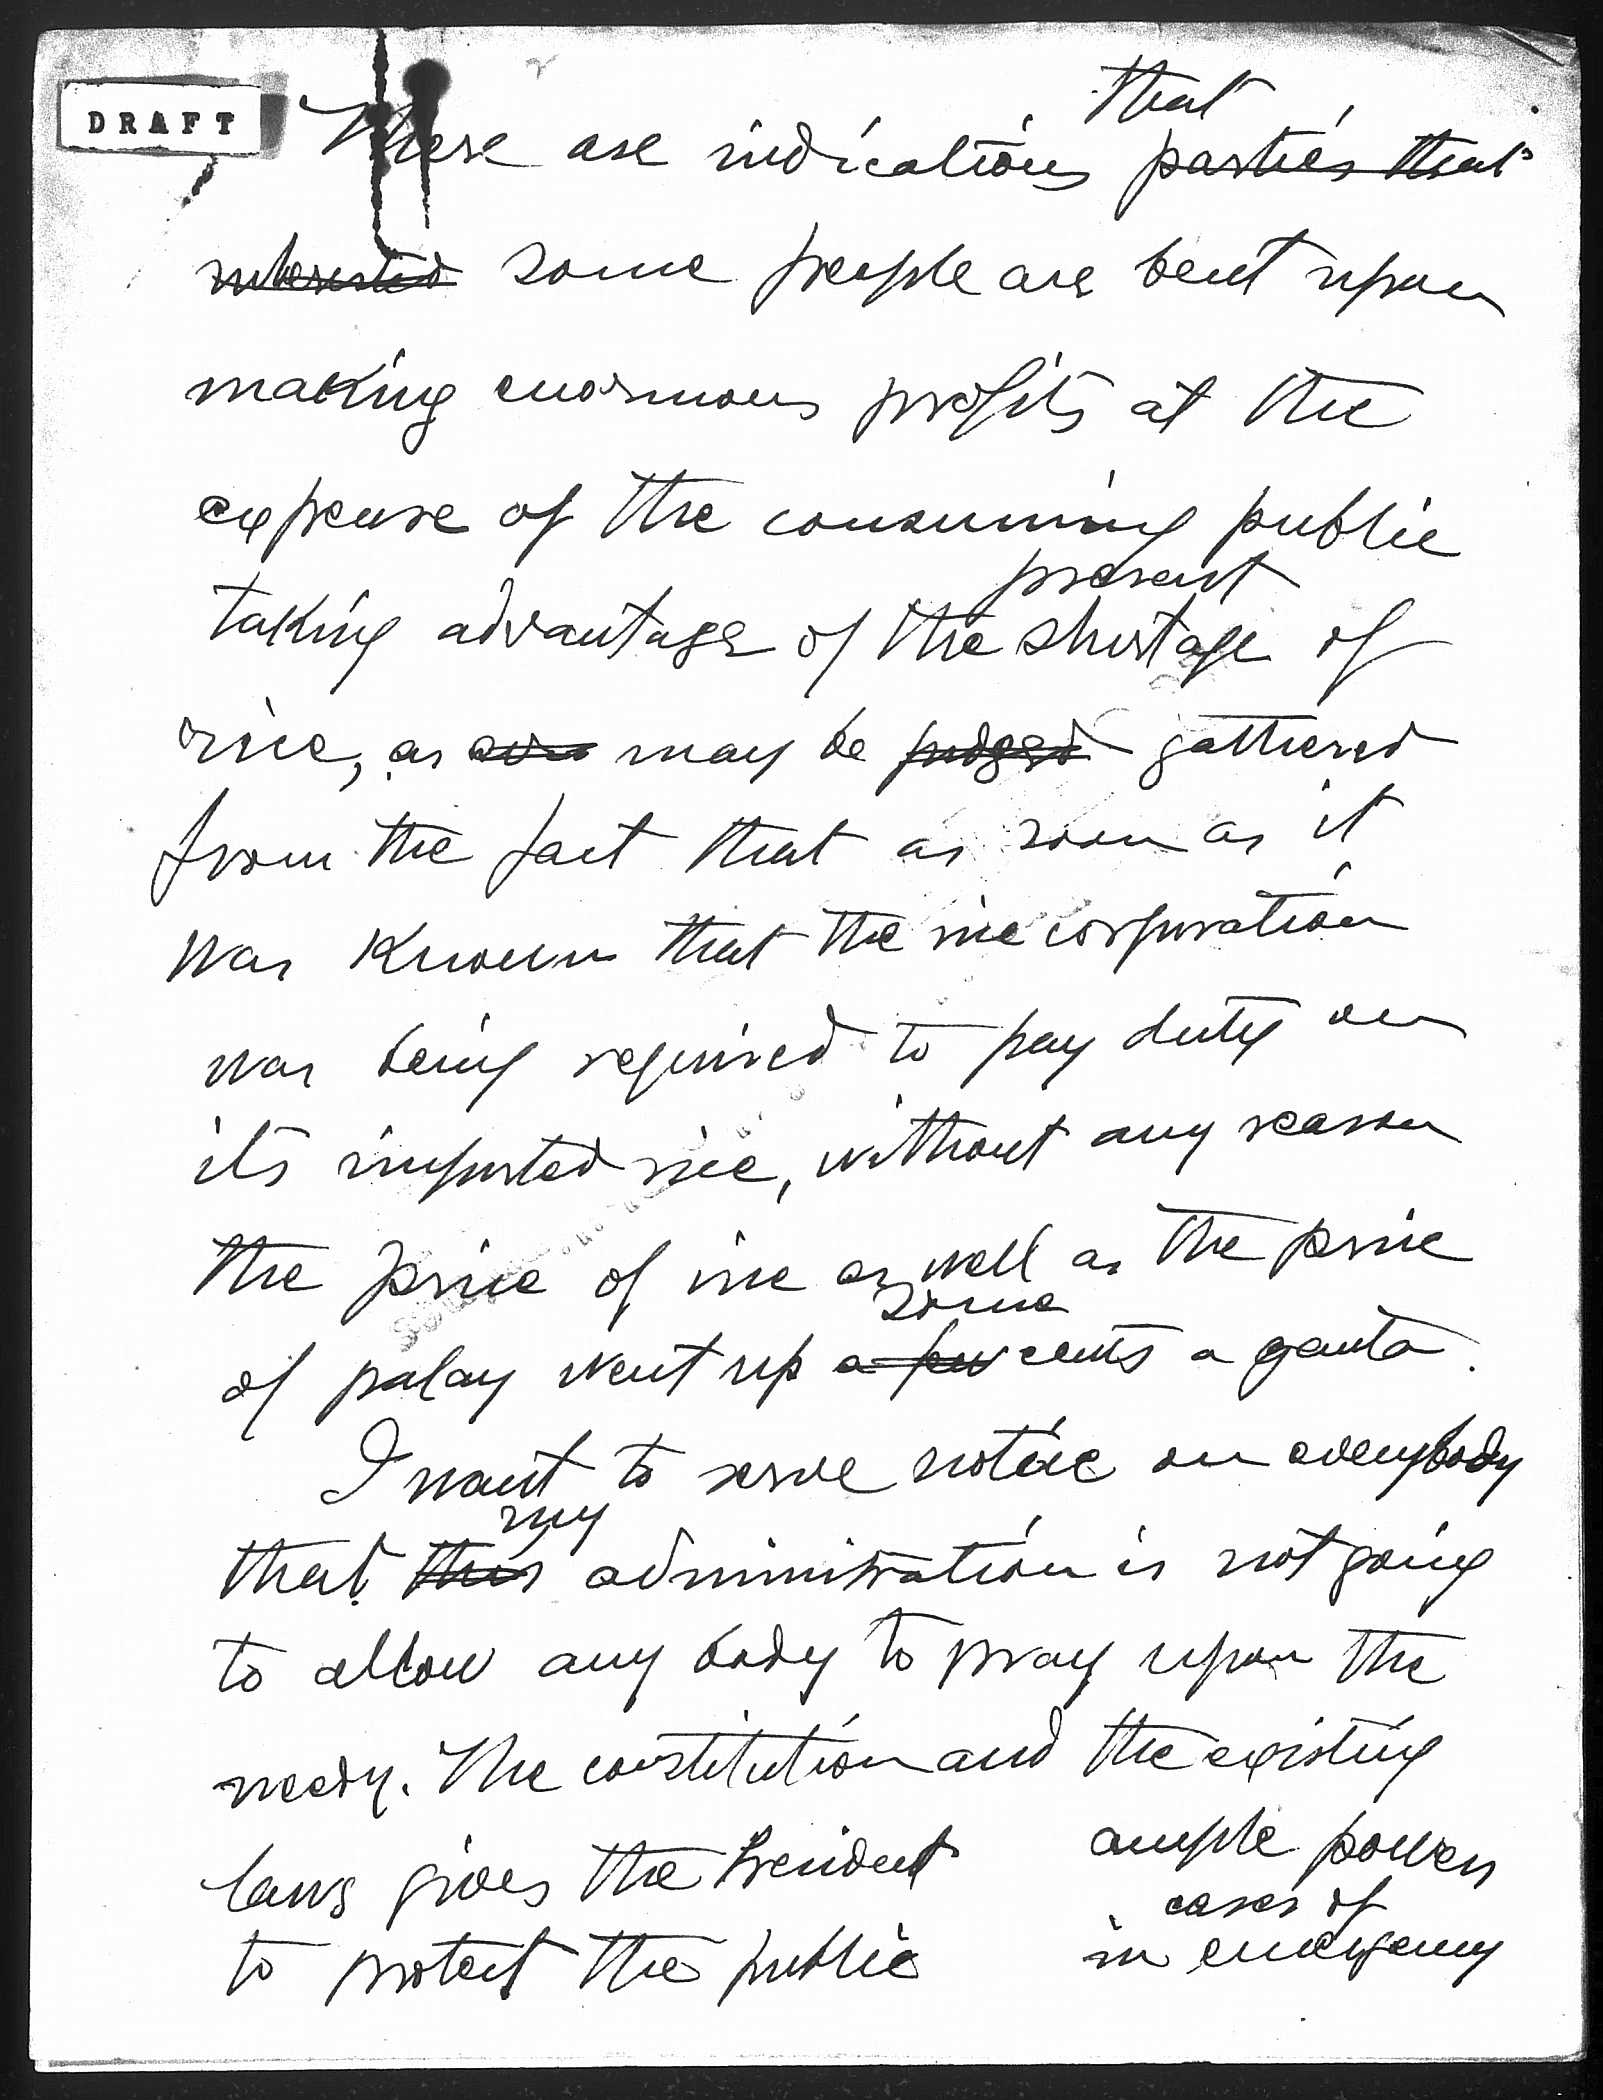 DRAFT
that
There are indications parties that
interested some people are bent upon
making enormous profits at the
expense of the consuming public
present
taking advantage of the shortage of
rice, as may be judged gathered
from the fact that as soon as it
was known that the rice corporation
was being required to pay duty on
its imported rice, without any reason
the price of rice as well as the price
some
of palay went up a few cents a ganta.
I want to serve notice on everybody
my
that this administration is not going
to allow any body to pray upon the
needy. The constitution and the existing
laws gives the President ample powers
cases of
to protect the public in emergency